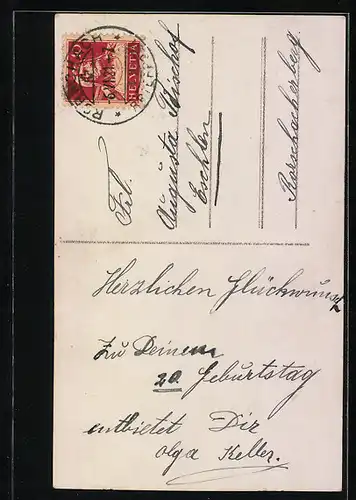 HELVETIA
Frl.
Augusta Bischof
Eschlen
Rorschacherberg
Herzlichen Glückwunsch
zu Deinem
20 Geburtstag
entbietet Dir
Olga Keller.